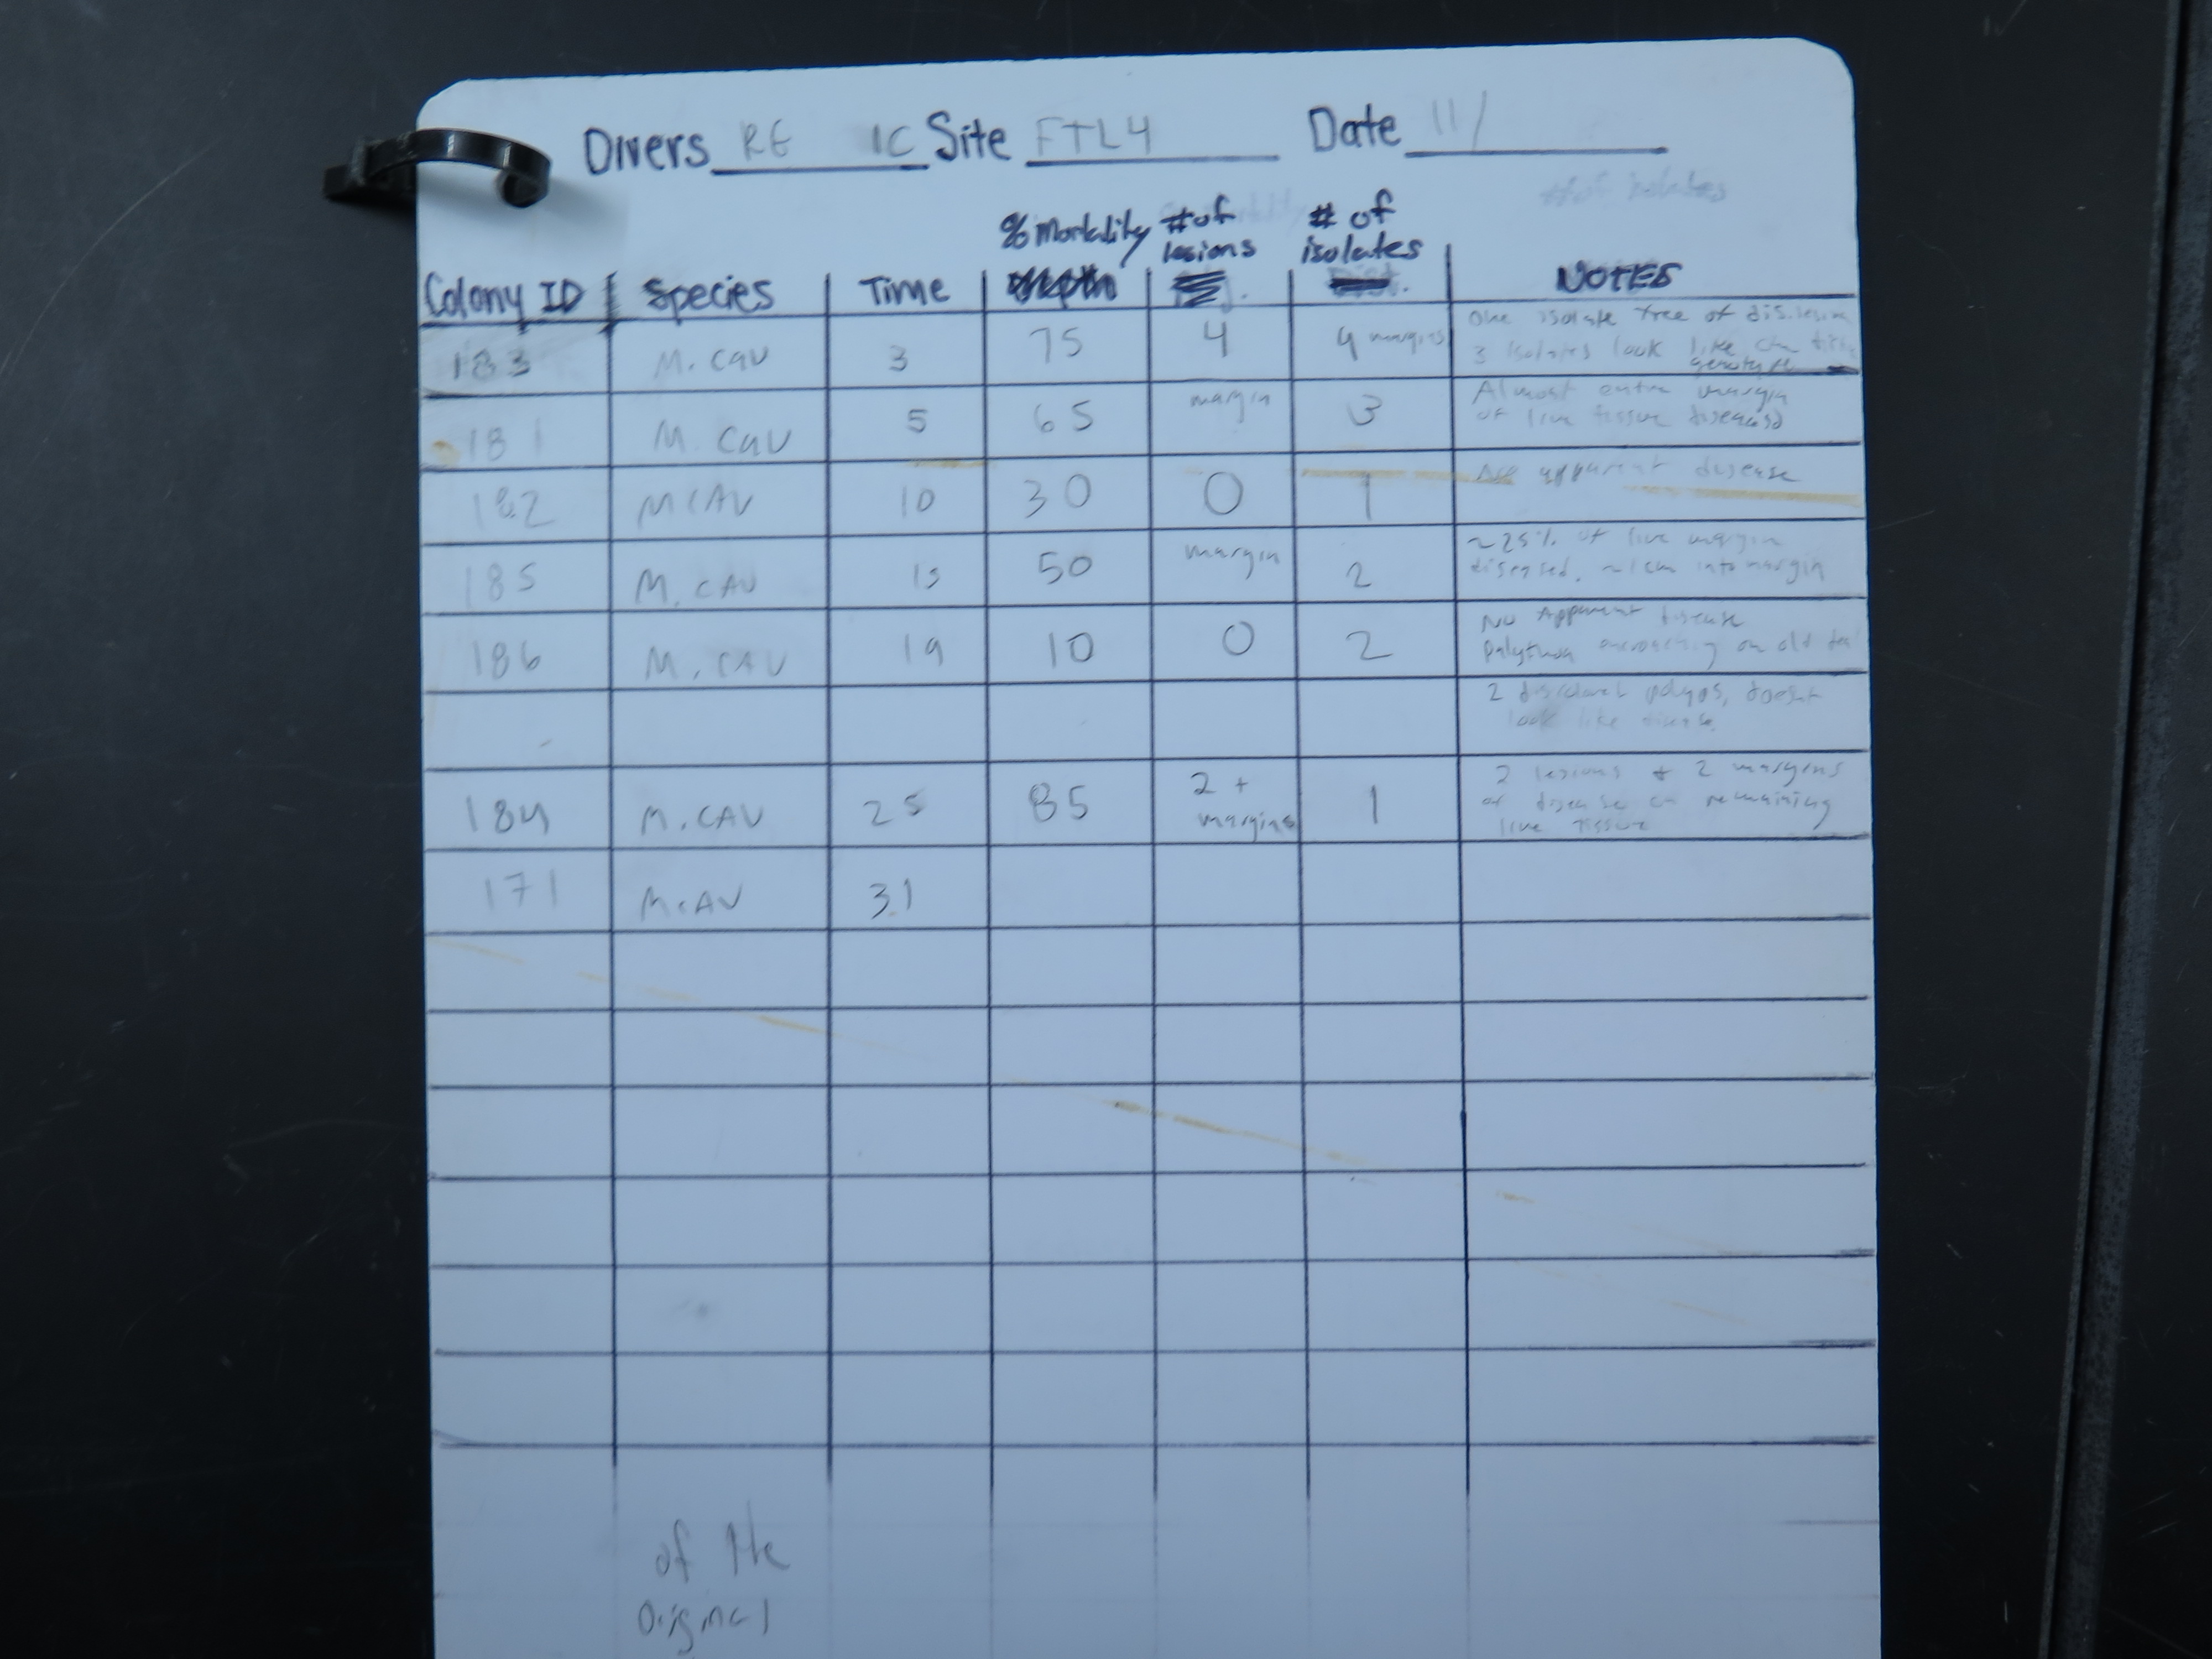 Divers RG IC Site FTL4 Date 11/
% mortality # of lesions # of isolates
Colony ID Species Time NOTES
183 M. cav 3 75 4 4 margins one isolate free of disease
3 isolates look like on
181 M. cav 5 65 margin 3 Almost entire margin
of live tissue diseased
182 MCAV 10 30 0 1 No apparent disease
185 M. CAV 15 50 margin 2 ~25% of live margin
diseased, ~1cm into margin
186 M. CAV 19 10 0 2 No apparent disease
palythoa on
2 discolored polyps, doesnt
look like disease
184 M. CAV 25 85 2 + margins 1 2 lesions + 2 margins
of disease on remaining
live tissue
171 MCAV 31
of the